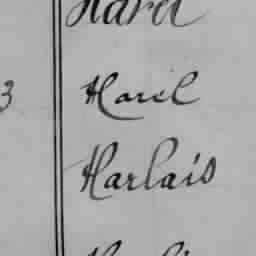 Harel
3 Harel
Harlais